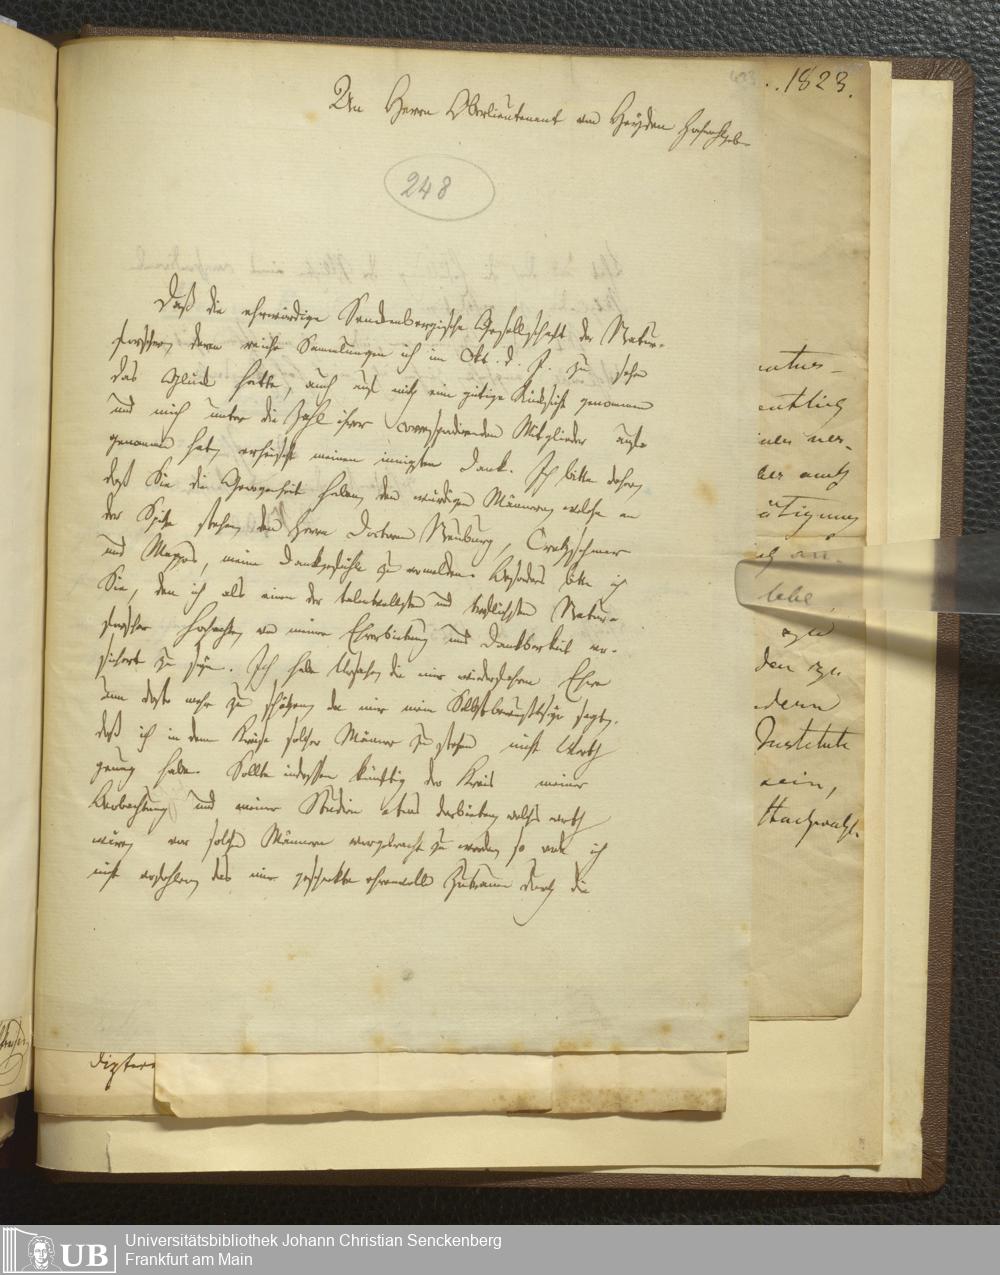 1823.
An Herrn Oberlieutenant von Heyden
248
Daß die ehrwürdige Senckenbergische Gesellschaft der Natur-
forscher, deren reiche Sammlungen ich im Okt. d. J. zu sehen
das Glück hatte, auch auf mich eine gütige Rücksicht genommen
und mich unter die Zahl ihrer correspondirenden Mitglieder aufge
genommen hat, erheischt meinen innigsten Dank. Ich bitte daher,
daß Sie die Gewogenheit haben, den würdigen Männern, welche an
der Spitze stehen, den Herrn Doctoren Neuburg, Cretzschmar
und Mappes, meine Dankgefühle zu vermelden. Besonders bitte ich
Sie, den ich als einen der talentvollsten und Natur-
forscher hochachte, von meiner Ehrerbietung und Dankbarkeit ver-
sichert zu seyn. Ich habe Ursache, die mir wiederfahrne Ehre
um desto mehr zu schätzen, da mir mein Selbstbewußtseyn sagt,
daß ich in dem Kreise solcher Männer zu stehen nicht Werth
genug habe. Sollte indessen künftig der Kreis meiner
Beobachtung und meiner Studien etwas darbieten, welches werth
wäre, vor solche Männer vorgebracht zu werden, so werde ich
nicht verfehlen, das mir geschenkte ehrenvolle Zutrauen durch die
den zu
Institute
sein,
UB
Universitätsbibliothek Johann Christian Senckenberg
Frankfurt am Main